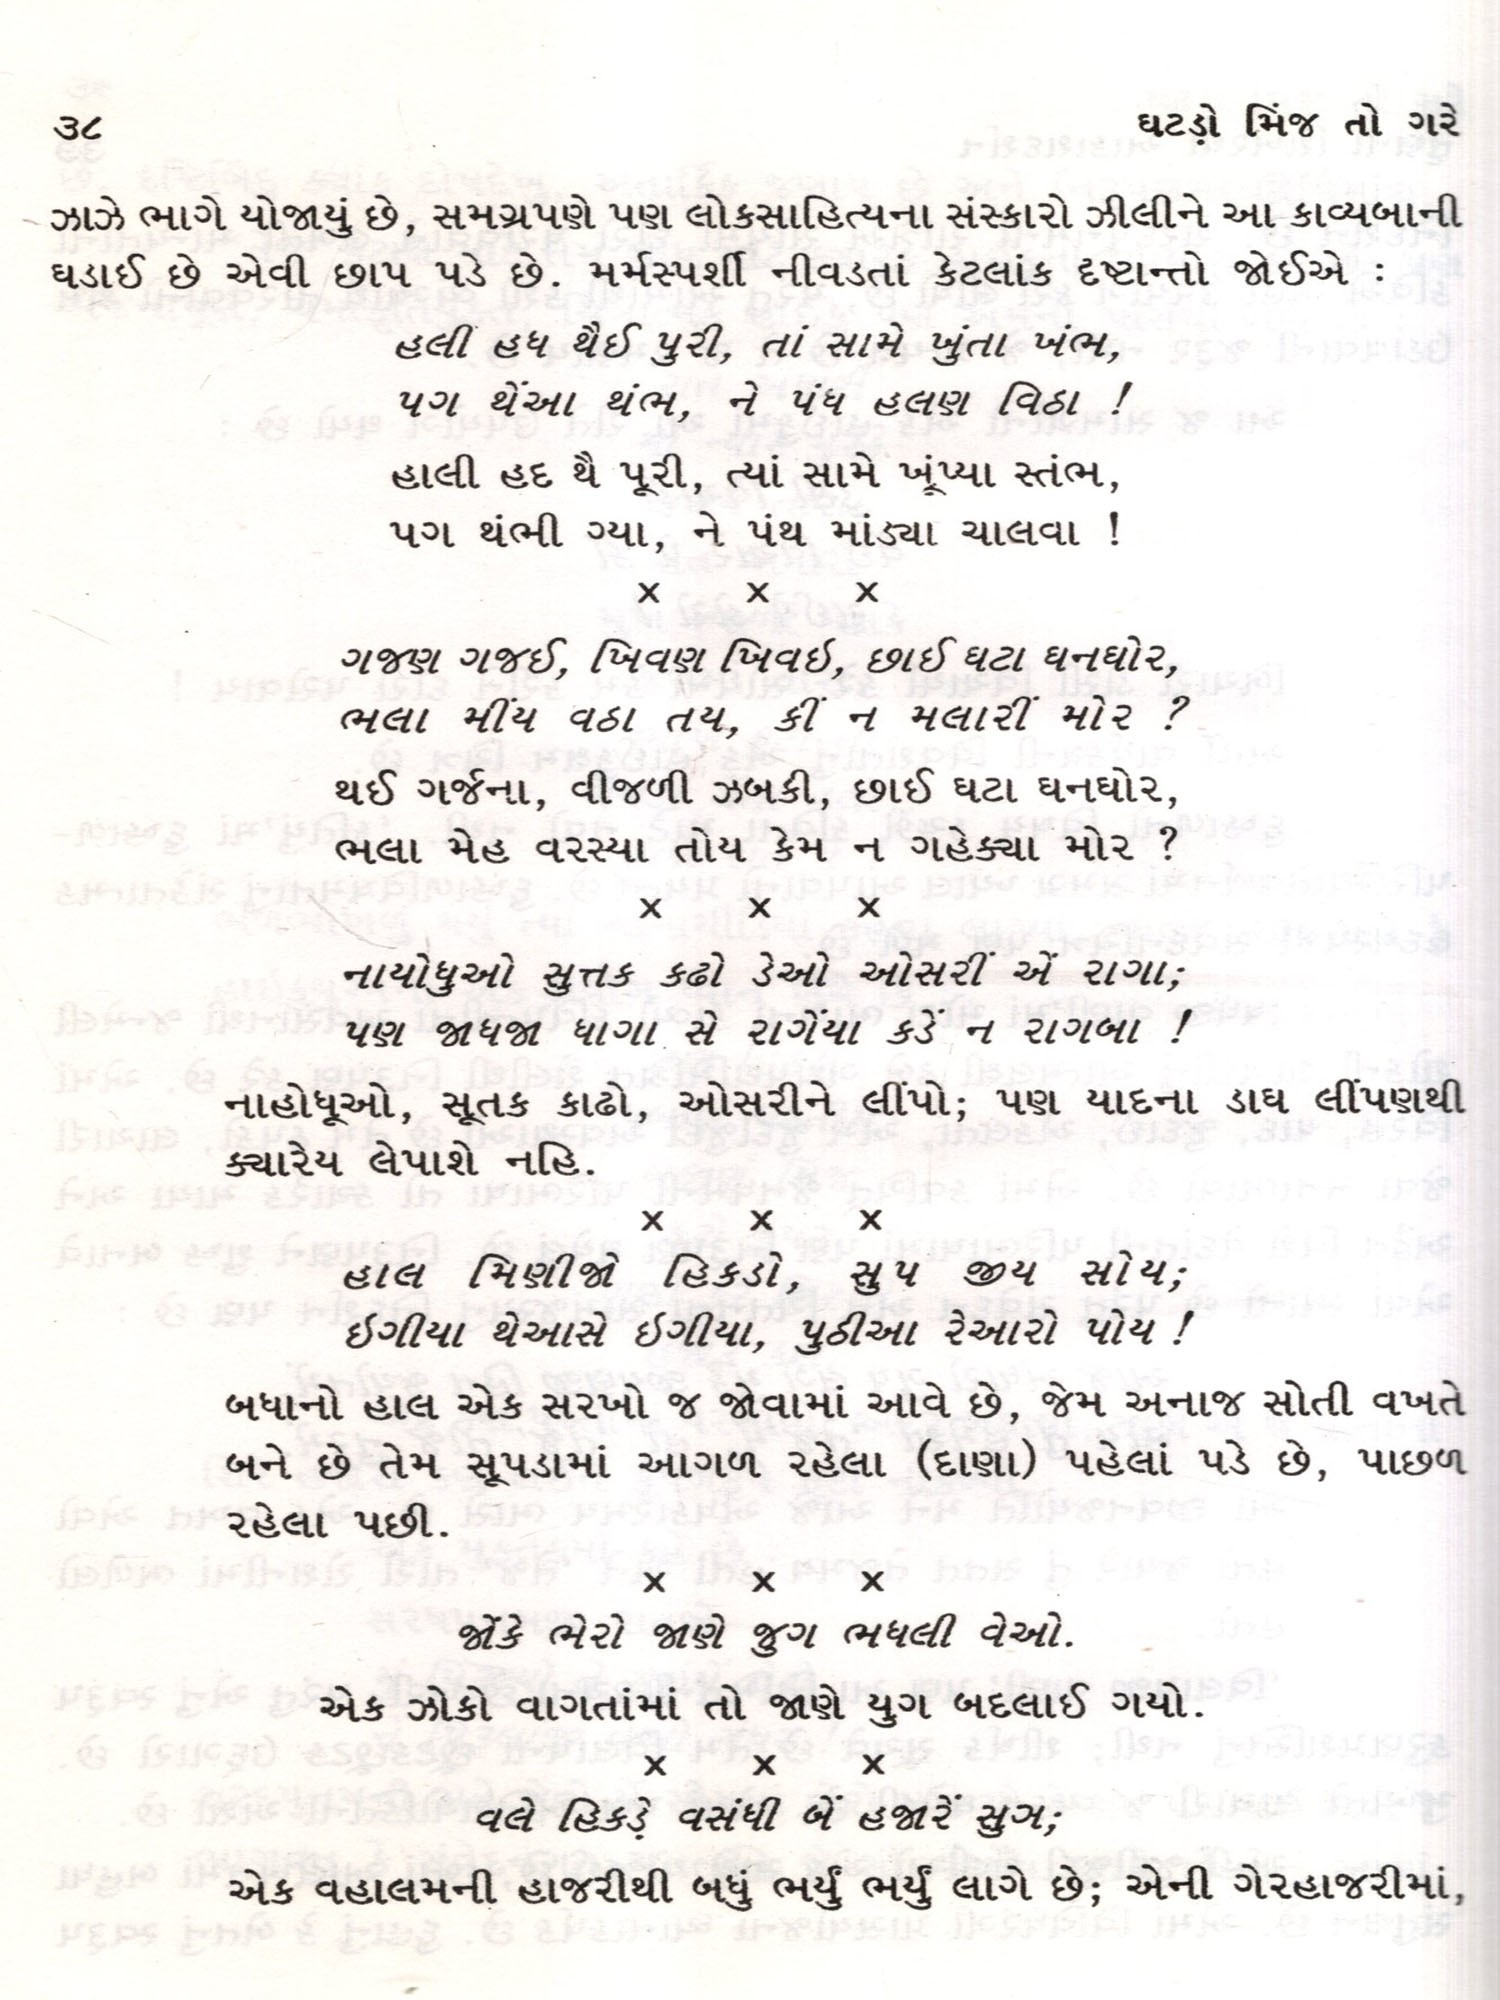 ૩૮ ઘટડો મિંજ તો ગરે
ઝાઝે ભાગે યોજાયું છે, સમગ્રપણે પણ લોકસાહિત્યના સંસ્કારો ઝીલીને આ કાવ્યબાની
ઘડાઈ છે એવી છાપ પડે છે. મર્મસ્પર્શી નીવડતાં કેટલાંક દૃષ્ટાન્તો જોઈએ :
હલીં હધ થૈઈ પુરી, તાં સામે ખુંતા ખંભ,
પગ થેંઆ થંભ, ને પંધ હલણ વિઠા !
હાલી હદ થૈ પૂરી, ત્યાં સામે ખૂંપ્યા સ્તંભ,
પગ થંભી ગ્યા, ને પંથ માંડ્યા ચાલવા !
x x x
ગજણ ગજઈ, ખિવણ ખિવઇ, છાઈ ઘટા ઘનઘોર,
ભલા મીંય વઠા તય, કીં ન મલારીં મોર ?
થઈ ગર્જના, વીજળી ઝબકી, છાઈ ઘટા ઘનઘોર,
ભલા મેહ વરસ્યા તોય કેમ ન ગહેક્યા મોર ?
x x x
નાયોધુઓ સુત્તક કઢો ડેઓ ઓસરીં એં રાગા;
પણ જાધજા ધાગા સે રાગેંયા કડેં ન રાગબા !
નાહોધૂઓ, સૂતક કાઢો, ઓસરીને લીંપો; પણ યાદના ડાઘ લીંપણથી
ક્યારેય લેપાશે નહિ.
x x x
હાલ મિણીજો હિકડો, સુપ જીય સોય;
ઇગીયા થેઆસે ઇગીયા, પુઠીઆ રેઆરો પોય !
બધાનો હાલ એક સરખો જ જોવામાં આવે છે, જેમ અનાજ સોતી વખતે
બને છે તેમ સૂપડામાં આગળ રહેલા (દાણા) પહેલાં પડે છે, પાછળ
રહેલા પછી.
x x x
જોંકે ભેરો જાણે જુગ ભધલી વેઓ.
એક ઝોકો વાગતાંમાં તો જાણે યુગ બદલાઈ ગયો.
x x x
વલે હિકડે વસંધી બેં હજારેં સુઞ;
એક વહાલમની હાજરીથી બધું ભર્યું ભર્યું લાગે છે; એની ગેરહાજરીમાં,